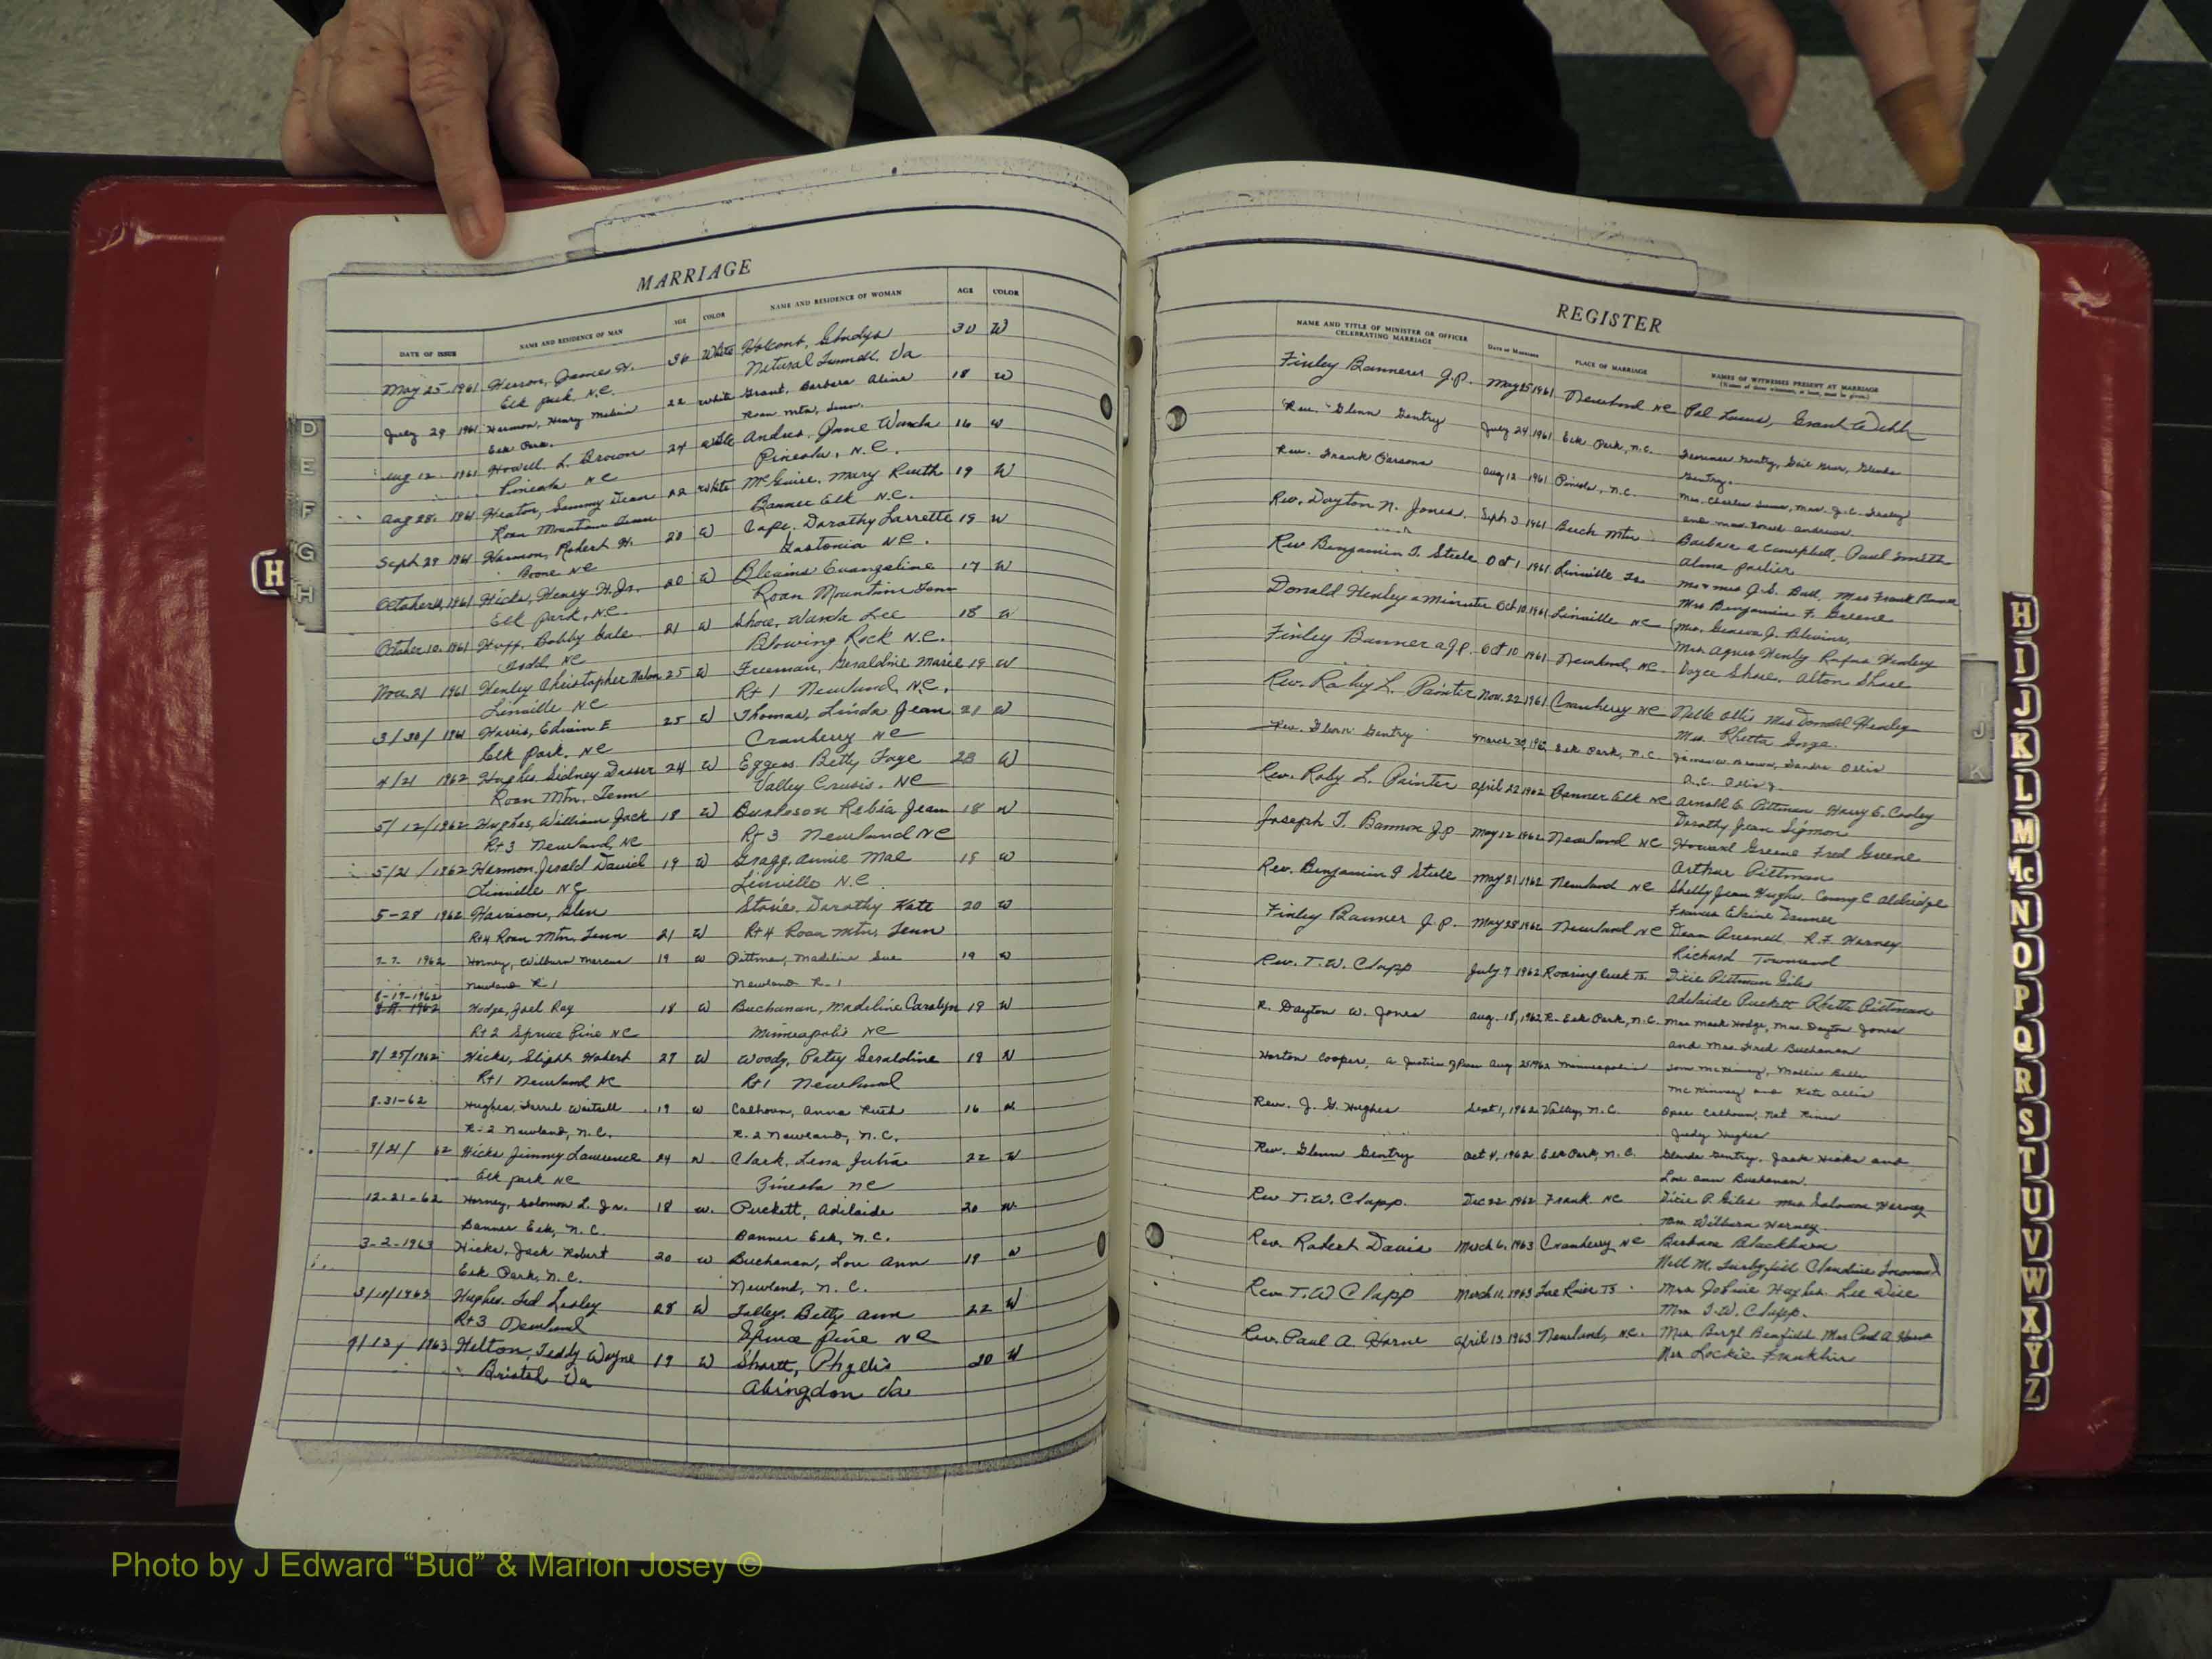 MARRIAGE
DATE OF ISSUE NAME AND RESIDENCE OF MAN AGE COLOR NAME AND RESIDENCE OF WOMAN AGE COLOR
May 25 1961 James H. 36 White Gladys 30 W
Elk Park N.C. Natural Tunnell, Va
July 29 1961 Harmon, Henry 22 White Grant, Barbara Aline 18 W
Elk Park. Roan Mtn, Tenn.
Aug 12 1961 Howell L. Brown 24 White Jane Wanda 16 W
Pineola NC Pineola, N.C.
Aug 28 1961 Heaton, Sammy Dean 22 White McGuire, Mary Ruth 19 W
Roan Mountain Tenn Banner Elk N.C.
Sept 29 1961 Harmon, Robert H. 20 W Cape, Dorothy 19 W
Boone NC Gastonia NC.
October 1961 Hicks, Henry H. Jr. 20 W Blevins Evangeline 17 W
Elk Park, NC. Roan Mountain Tenn
October 10, 1961 Huff, Bobby Gale 21 W Shore, Wanda Lee 18 W
Todd, NC Blowing Rock N.C.
Nov. 21 1961 Henley Christopher 25 W Freeman, Geraldine Marie 19 W
Linville NC Rt 1 Newland, N.C.
3/30/1961 Harris, Edwin E 25 W Thomas, Linda Jean 21 W
Elk Park, NC Cranberry NC
4/21 1962 Hughes Sidney 24 W Eggers, Betty Faye 23 W
Roan Mtn. Tenn Valley Crusis, NC
5/12/1962 Hughes, William Jack 18 W Burleson Jean 18 W
Rt 3 Newland, NC Rt 3 Newland NC
5/21/1962 Harmon, Jerald David 19 W Gragg, Annie Mae 18 W
Linville NC Linville N.C.
5-28 1962 Harrison, Glen Dorothy Kate 20 W
Rt 4 Roan Mtn, Tenn 21 W Rt 4 Roan Mtn, Tenn
7-7 1962 Horney, Wilburn Marcus 19 W Pittman, Madeline Sue 19 W
Newland R.1 Newland R.1
8-19-1962
Hodge, Joel Ray 18 W Buchanan, Madeline Carolyn 19 W
Rt 2 Spruce Pine NC Minneapolis NC
8/25/1962 Hicks, 27 W Woody, Patsy Geraldine 19 W
Rt 1 Newland NC Rt 1 Newland
8-31-62 Hughes, 19 W Calhoun, Anna Ruth 16 W
R-2 Newland, N.C. R-2 Newland, N.C.
9/21/62 Hicks Jimmy Lawrence 24 W Clark, Lena Julia 22 W
Elk Park NC Pineola NC
12-21-62 Horney, Solomon L. Jr. 18 W. Puckett, Adilaide 20 W
Banner Elk, N.C. Banner Elk, N.C.
3-2-1963 Hicks, Jack Robert 20 W Buchanan, Lou Ann 19 W
Elk Park, N.C. Newland, N.C.
3/10/1963 Hughes, Ted Lesley 28 W Talley, Betty Ann 22 W
Rt 3 Newland Spruce Pine NC
4/13/1963 Helton, Teddy Wayne 19 W Shortt, Phyllis 20 W
Bristol Va Abingdon Va
REGISTER
NAME AND TITLE OF MINISTER OR OFFICER CELEBRATING MARRIAGE Date of Marriage PLACE OF MARRIAGE NAMES OF WITNESSES PRESENT AT MARRIAGE
Finley Banner J.P. May 25 1961 Newland NC Grant Webb
Rev. Glenn Gentry July 29 1961 Elk Park, N.C. Florence Gentry, Glenda
Gentry.
Rev. Frank Parsons Aug 12 1961 Pineola, N.C. Mrs. Charles
Rev. Dayton N. Jones. Sept 3 1961 Beech Mtn Barbara A Campbell, Paul Smith
Rev Benjamin F. Steele Oct 1 1961 Linville Mr & Mrs J.S. Ball, Mrs Frank
Mrs Benjamin F. Greene
Donald Henley a Minister Oct 10, 1961 Linville NC Mrs. Geneva J. Blevins,
Mrs Agnes Henley Rufus Henley
Finley Banner a J.P. Oct 10 1961 Newland, NC. Shore, Alton Shore
Rev. Roby L. Painter Nov. 22 1961 Cranberry NC Mrs Donald Henley
Rev. Glenn Gentry March 30, 1962 Elk Park, N.C. James W. Brown, Sandra Ollis
Rev. Roby L. Painter April 22 1962 Banner Elk NC Arnold G. Pittman Harry E. Cooley
Dorothy Jean Sigmon
Joseph T. Banner J.P. May 12 1962 Newland NC Howard Greene Fred Greene
Arthur Pittman
Rev. Benjamin F Steele May 21 1962 Newland NC Shelby Jean Hughes, Aldridge
Finley Banner J.P. May 28 1962 Newland NC Dean R.F. Horney
Richard Townsend
Rev. T.W. Clapp July 7 1962 Roaring Creek Ts. Dixie Pittman Giles
Adelaide Puckett Pittman
R. Dayton W. Jones Aug. 18, 1962 R. Elk Park, N.C. Mrs Mack Hodge, Mrs. Dayton Jones
and Mrs Fred Buchanan
Horton Cooper, a Justice of Peace Aug 25 1962 Minneapolis Tom McKinney, Mollie Belle
McKinney and Kate Ollis
Rev. J. G. Hughes Sept 1, 1962 Valley, N.C. Opal Calhoun, Nat
Judy Hughes
Rev. Glenn Gentry Oct 4, 1962 Elk Park, N.C. Glenda Gentry, Jack Hicks and
Lou Ann Buchanan.
Rev T.W. Clapp. Dec 22 1962 Frank NC Dixie P. Giles Mrs Solomon Horney
Mrs Wilburn Horney.
Rev. Robert Davis March 6, 1963 Cranberry NC Barbara Blackburn
Rev. T.W Clapp March 11, 1963 Toe River TS Lee Wise
Mrs T.W. Clapp.
Rev. Paul A. Horne April 13 1963 Newland, NC. Mrs Beryl Benfield Mrs Paul A Horne
Mrs Lockie Franklin
D
E
F
G
H
H
J
K
H
I
J
K
L
M
Mc
N
O
P
Q
R
S
T
U
V
W
X
Y
Z
Photo by J Edward “Bud” & Marion Josey ©